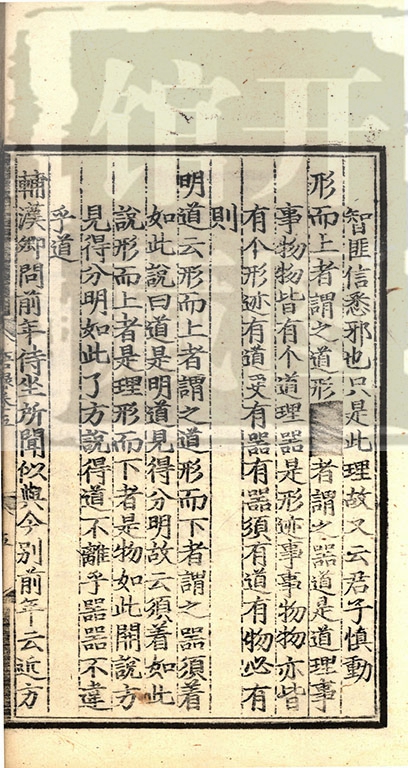 智匪信悉邪也只是此理故又云君子慎動
形而上者謂之道形 者謂之器道是道理事
事物物皆有个道理器是形迹事事物物亦皆
有个形迹有道須有器有器須有道有物必有
則
明道云形而上者謂之道形而下者謂之器須着
如此說曰道是明道見得分明故云須着如此
說形而上者是理形而下者是物如此開說方
見得分明如此了方說得道不離乎器器不違
乎道
輔漢卿問前年侍坐所聞似與今別前年云近方
開館